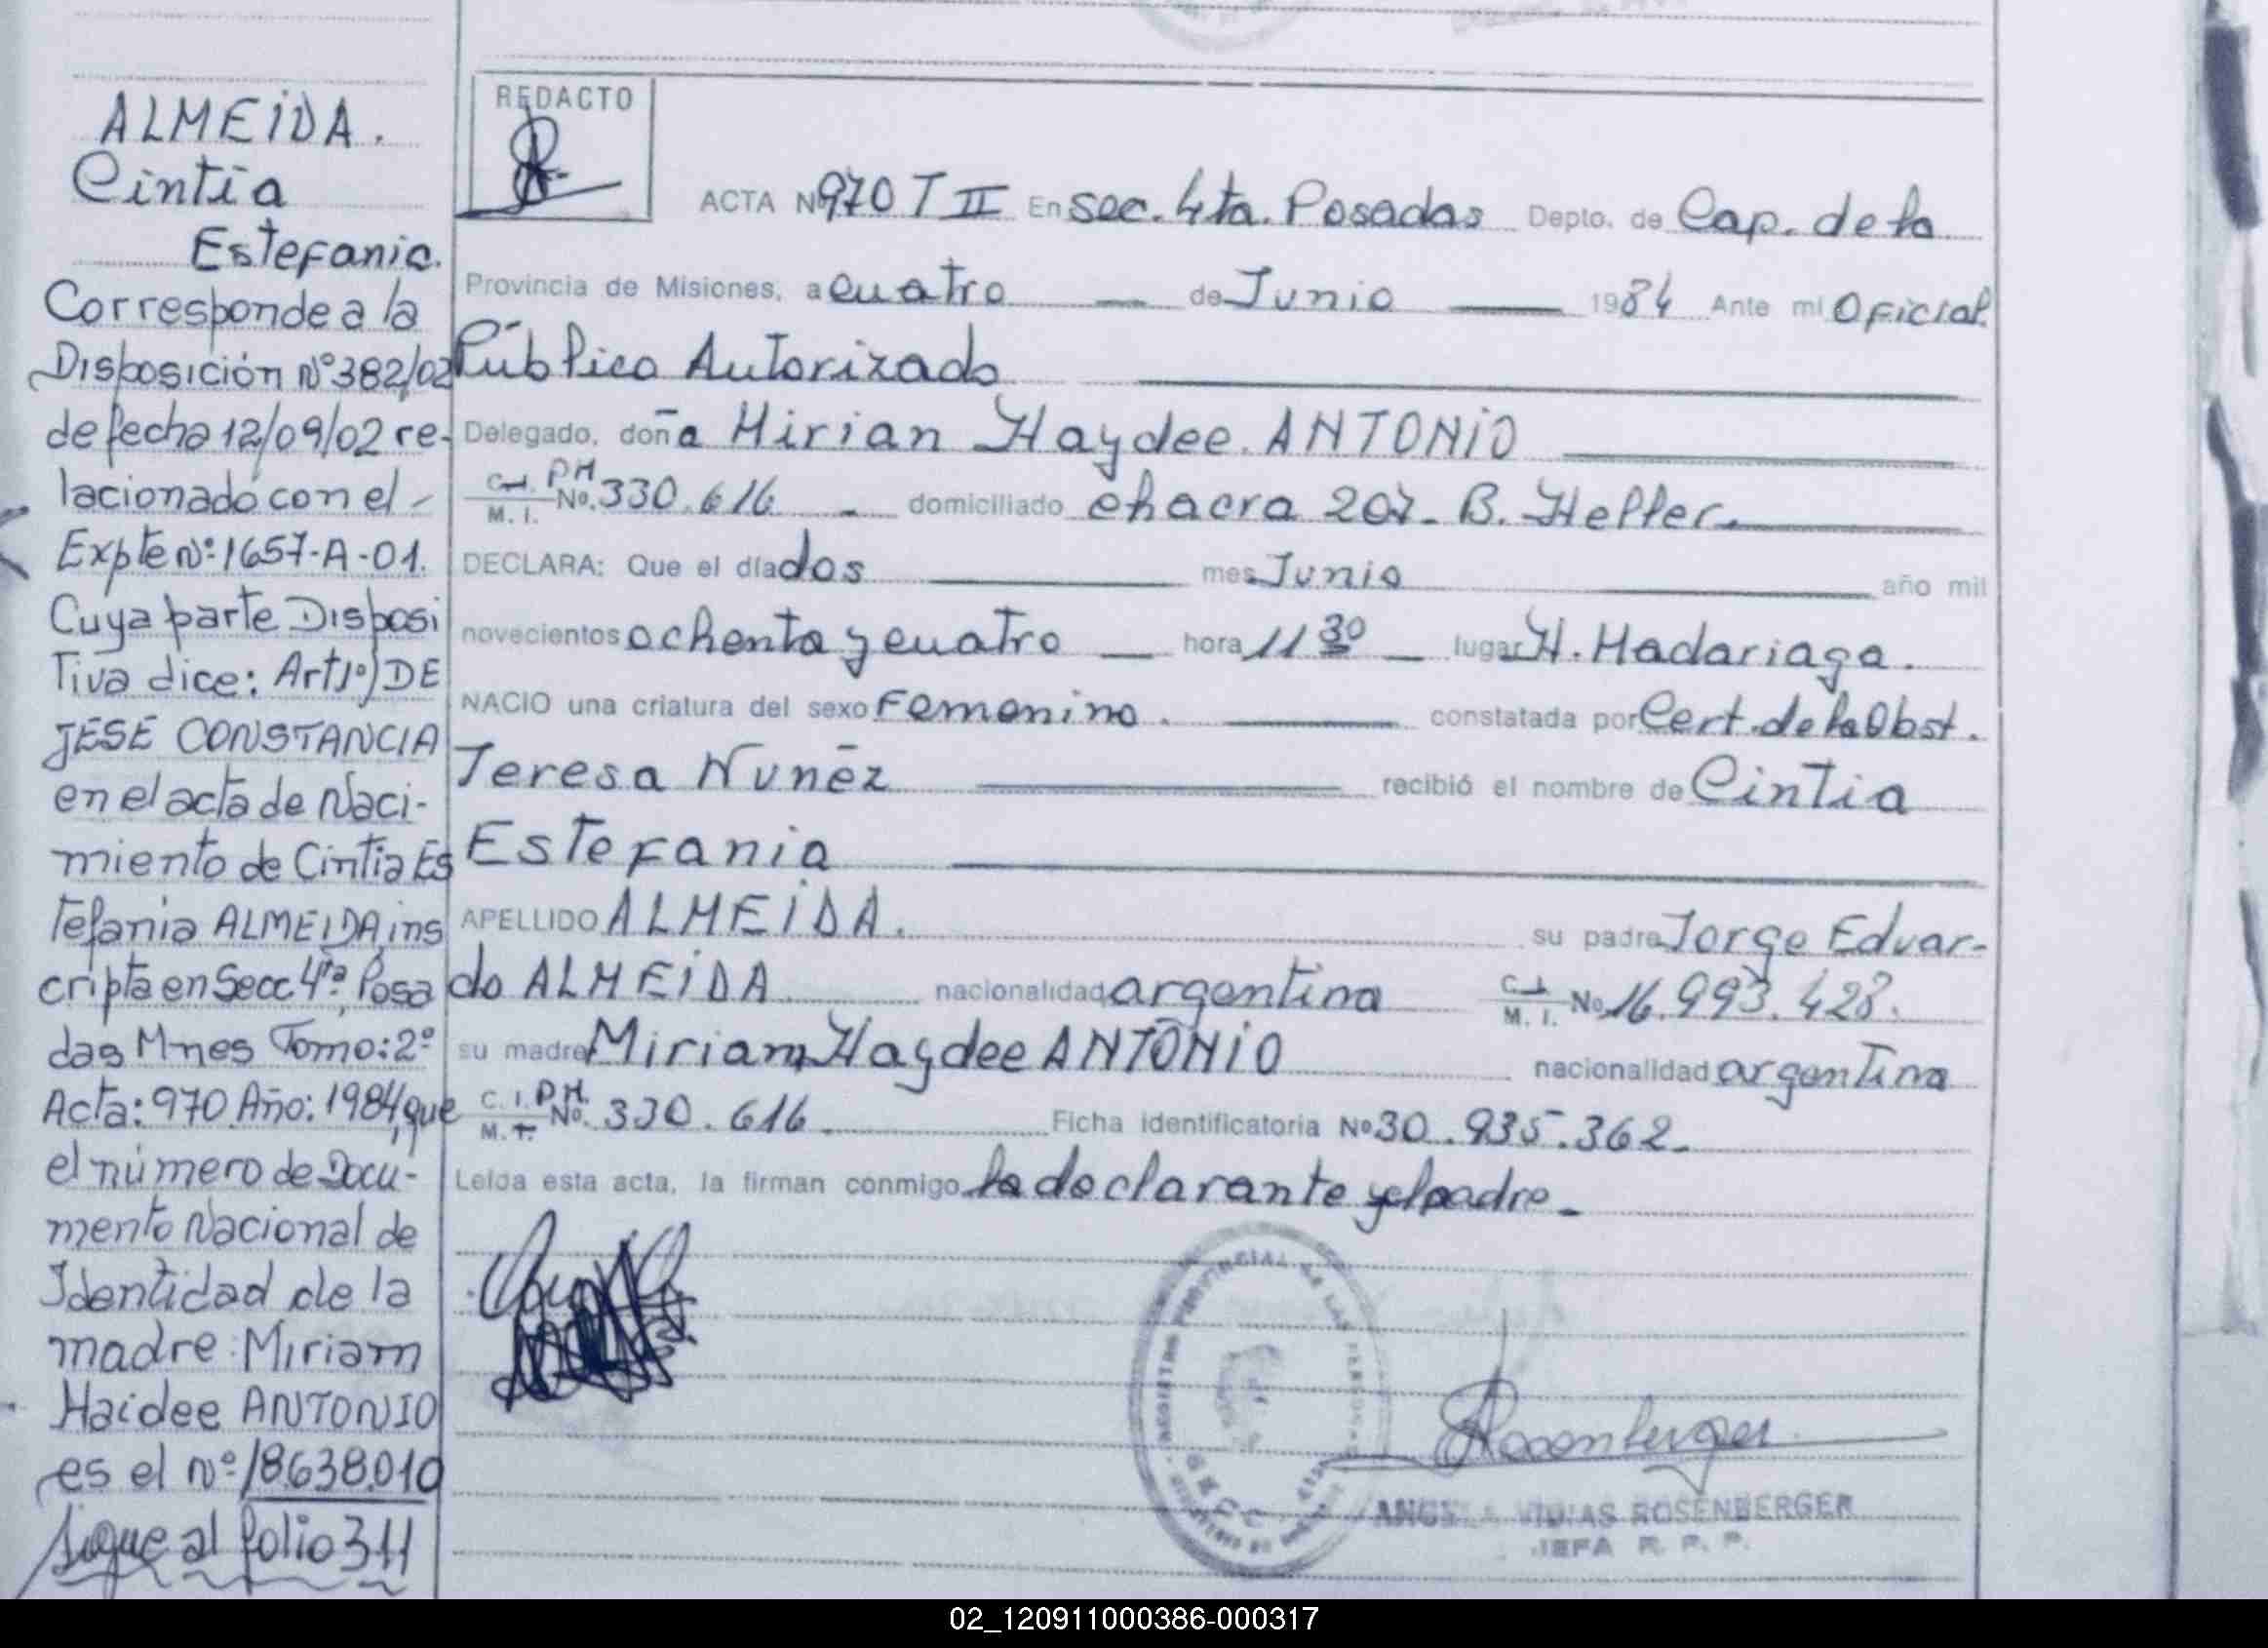 ALMEIDA.
Cintia
Estefania.
Corresponde a la
Disposición Nº 382/02
de fecha 12/09/02 re-
lacionado con el -
Expte Nº: 1657-A-01.
Cuya parte Disposi
tiva dice: Art 1º) DE
JESE CONSTANCIA
en el acta de Naci-
miento de Cintia Es
tefania ALMEIDA, ins
cripta en Secc 4ta, Posa
das Mnes Tomo: 2º
Acta: 970. Año: 1984, que
el número de Docu-
mento Nacional de
Identidad de la
madre: Miriam
Haidee ANTONIO
es el nº 18.638.010
Sigue al folio 311
REDACTO
ACTA Nº 970 T II En sec. 4ta. Posadas Depto. de Cap. de la
Provincia de Misiones, a cuatro de Junio 1984 Ante mí Oficial
Público Autorizado
Delegado, doña Mirian Haydee. ANTONIO
C.I. M.I. PH No. 330.616 - domiciliado chacra 207- B. Heller.
DECLARA: Que el día dos mes Junio año mil
novecientos ochenta y cuatro hora 11 30 lugar H. Madariaga.
NACIO una criatura del sexo Femenino. constatada por Cert. de la Obst.
Teresa Nuñez recibió el nombre de Cintia
Estefania
APELLIDO ALMEIDA. su padre Jorge Eduar-
do ALMEIDA nacionalidad argentina C.I. M.I. No 16.993.428.
su madre Miriam Haydee ANTONIO nacionalidad argentina
C.I. M.I. PH. No. 330.616. Ficha identificatoria No 30.935.362.
Leída esta acta, la firman conmigo la declarante y el padre.
REGISTRO PROVINCIAL DE LAS PERSONAS
Rosenberger
ROSENBERGER
JEFA R. P. P.
02_120911000386-000317